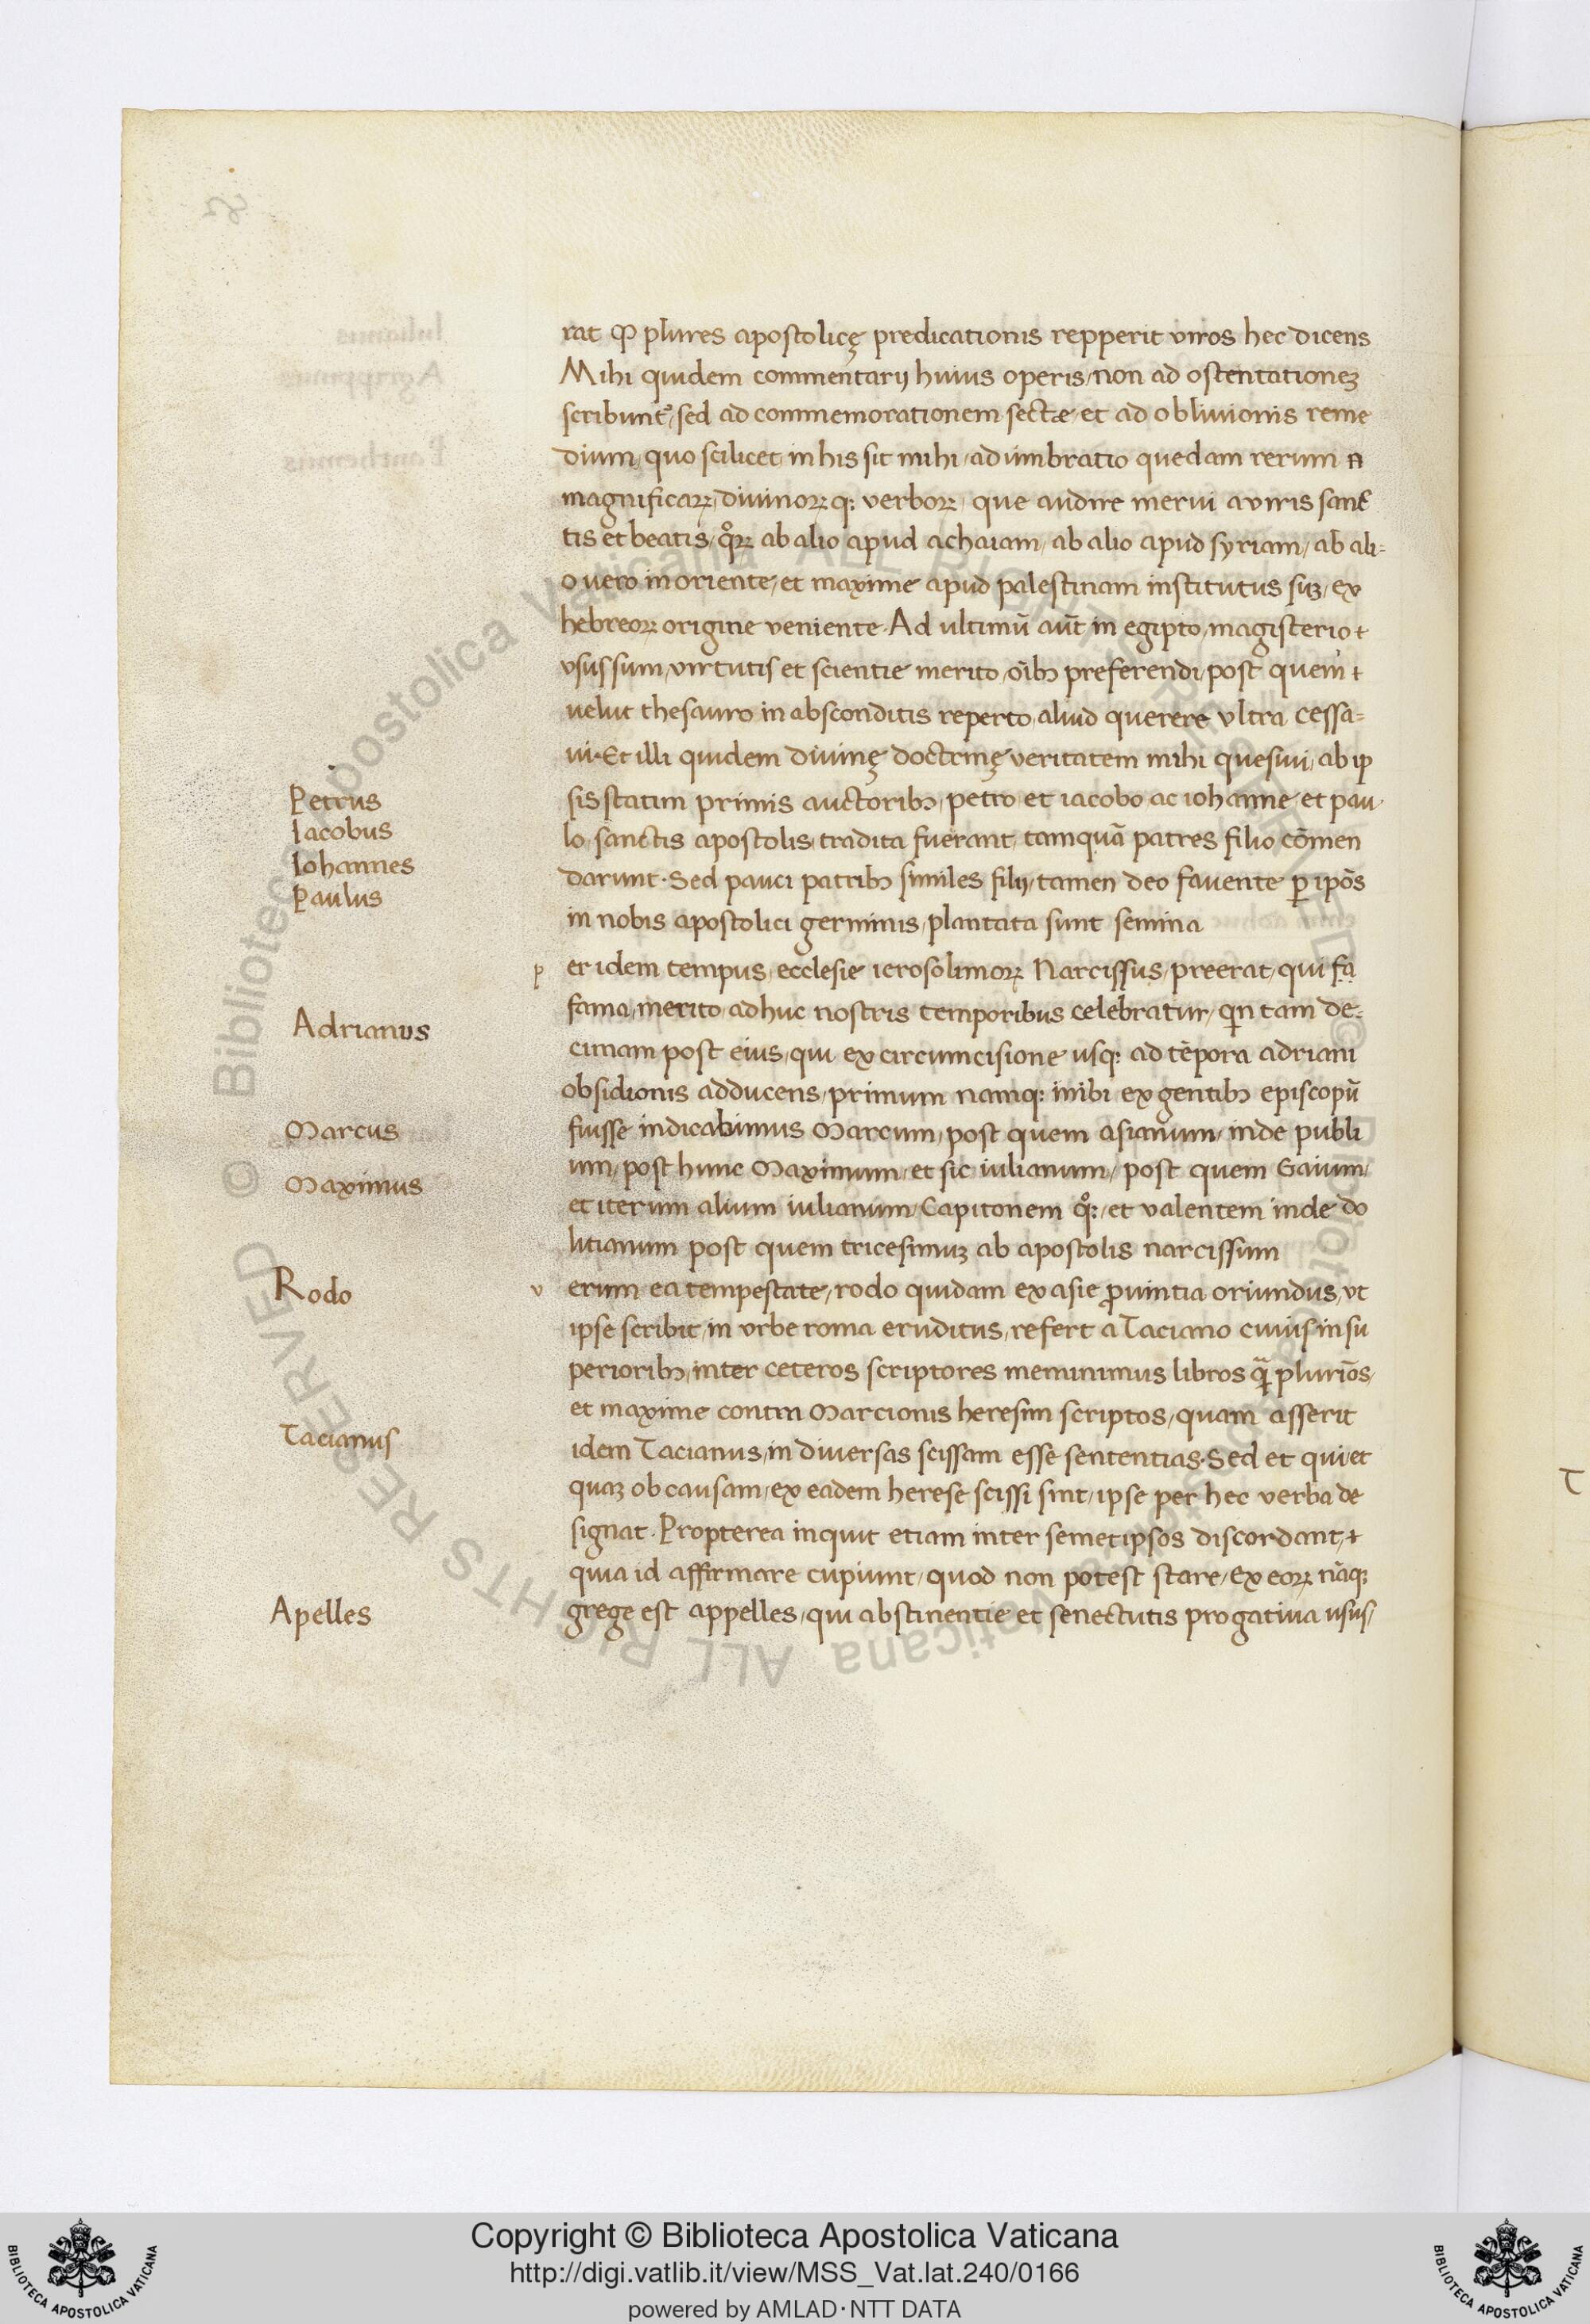 rat ꝙ plures apostolicę predicationis repperit viros hec dicens
Mihi quidem commentarij huius operis / non ad ostentationeꝫ
scribunt᷑ / sed ad commemorationem sectæ et ad obliuionis reme
dium / quo scilicet in his sit mihi / adumbratio quedam rerum
magnificaꝝ / diuinoꝝ qꝫ verboꝝ / que audire merui a viris sanc
tis et beatis / qͦꝝ ab alio apud achaiam / ab alio apud syriam / ab ali=
o vero in oriente / et maxime apud palestinam institutus suꝫ / ex
hebreoꝝ origine veniente · Ad ultimū aūt in egipto / magisterio
vsus sum / virtutis et scientie merito / oībꝫ preferendi / post quem
uelut thesauro in absconditis reperto / aliud querere vltra cessa=
ui · Et illi quidem diuinę doctrinę veritatem mihi quesiui / ab ip
Petrus
sis statim primis auctoribꝫ / petro et iacobo ac iohanne et pau
Iacobus
lo / sanctis apostolis / tradita fuerant / tamquā patres filio cōmen
Iohannes
darunt · Sed pauci patribꝫ similes filij / tamen deo fauente ꝑ ipōs
Paulus
in nobis apostolici germinis / plantata sunt semina
p er idem tempus / ecclesie ierosolimoꝝ Narcissus / preerat / qui fa
fama / merito / adhuc nostris temporibus celebratur / qn tam de=
Adrianus
cimam post eius / qui ex circumcisione usqꝫ ad tēpora adriani
obsidionis adducens / primum namqꝫ inibi ex gentibꝫ episcopū
Marcus
fuisse indicabimus Marcum / post quem asianum / inde publi
um / post hunc Maximum / et sic iulianum / post quem Gaium /
Maximus
et iterum alium iulianum / Capitonem qͦꝫ / et valentem inde do
litianum post quem tricesimuꝫ ab apostolis narcissum
Rodo
v erum ea tempestate / rodo quidam ex asie ꝓuintia oriundus / vt
ipse scribit / in vrbe roma eruditus / refert a Taciano cuius in su
perioribꝫ / inter ceteros scriptores meminimus libros plurīos /
et maxime contra Marcionis heresim scriptos / quam asserit
Tacianus
idem Tacianus / in diuersas scissam esse sententias · Sed et qui et
quaꝫ ob causam / ex eadem herese scissi sint / ipse per hec verba de
signat · Propterea inquit etiam inter semetipsos discordant /
quia id affirmare cupiunt / quod non potest stare / Ex eoꝝ nāqꝫ
Apelles
grege est appelles / qui abstinentie et senectutis progatiua usus /
Copyright © Biblioteca Apostolica Vaticana
http://digi.vatlib.it/view/MSS_Vat.lat.240/0166
powered by AMLAD·NTT DATA
BIBLIOTECA APOSTOLICA VATICANA
BIBLIOTECA APOSTOLICA VATICANA
© Biblioteca Apostolica Vaticana ALL RIGHTS RESERVED © Biblioteca Apostolica Vaticana ALL RIGHTS RESERVED